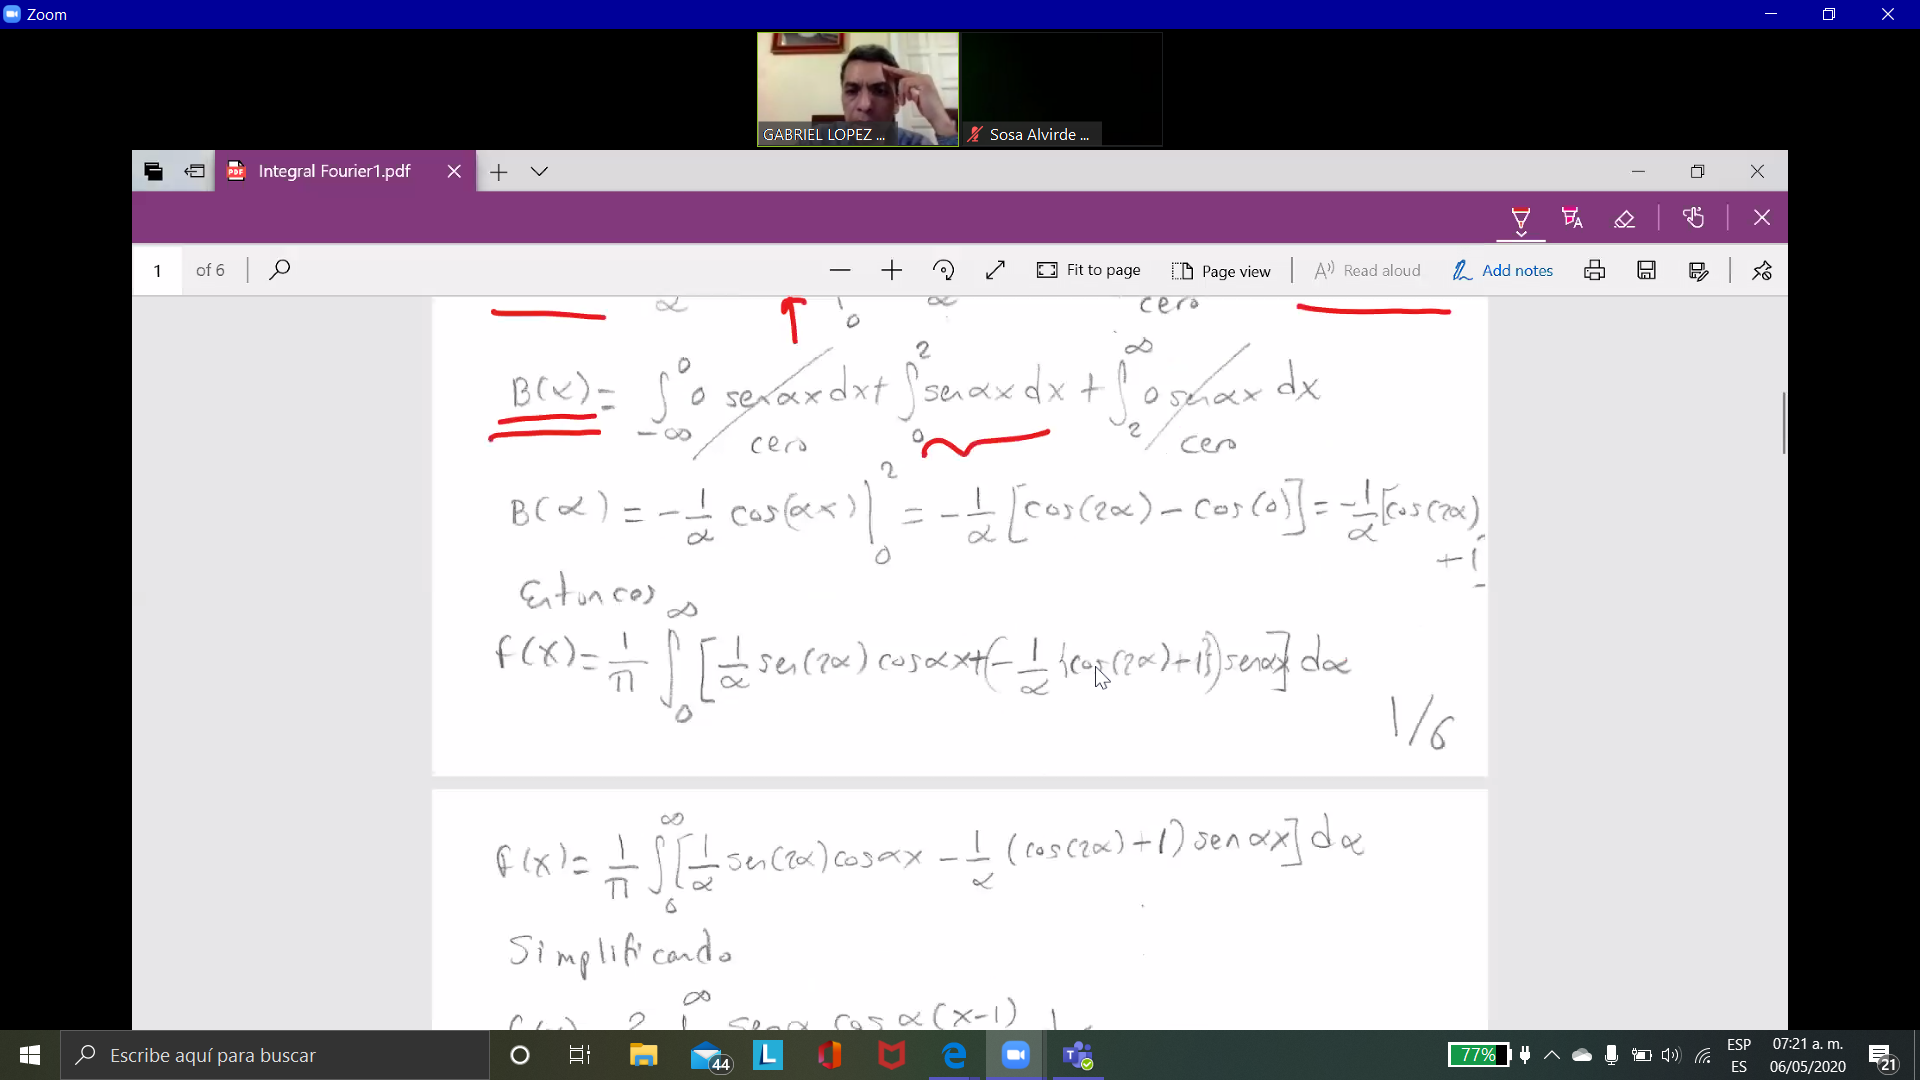 Zoom
GABRIEL LOPEZ ...
Sosa Alvirde ...
Integral Fourier1.pdf
1 of 6
Fit to page
Page view
Read aloud
Add notes
α 0 α cero
B(α) = ∫_{-∞}^{0} 0 sen αx dx + ∫_{0}^{2} sen αx dx + ∫_{2}^{∞} 0 sen αx dx
cero cero
B(α) = -1/α cos(αx) |_{0}^{2} = -1/α [cos(2α) - cos(0)] = -1/α [cos(2α)
+1
Entonces
f(x) = 1/π ∫_{0}^{∞} [1/α sen(2α) cos αx + (-1/α {cos(2α)+1}) sen αx] dα
1/6
f(x) = 1/π ∫_{0}^{∞} [1/α sen(2α) cos αx - 1/α (cos(2α)+1) sen αx] dα
Simplificando
∞
f(x) 2 sen α cos α(x-1)
Escribe aquí para buscar
44
77%
ESP
ES
07:21 a. m.
06/05/2020
21